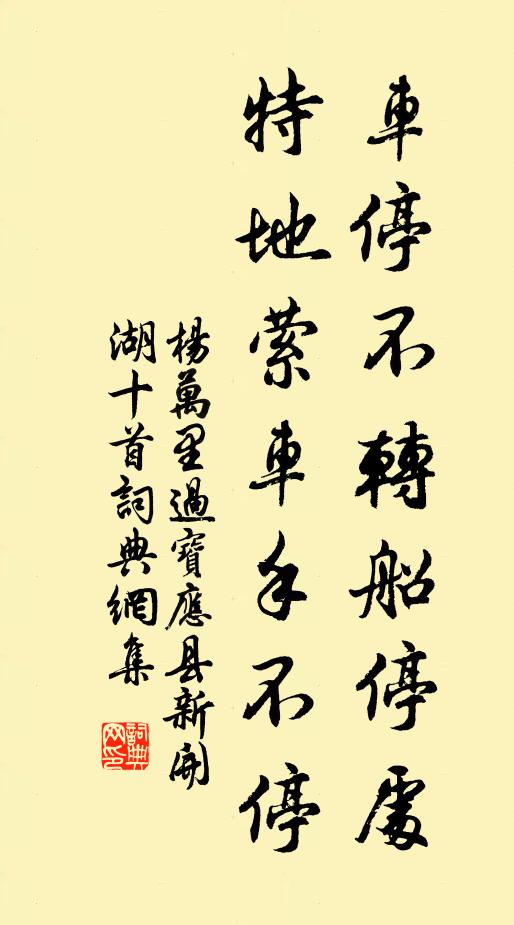 車停不轉船停處
特地縈車手不停
楊萬里過寶應县新開
湖十首詞典網集
詞典
网印